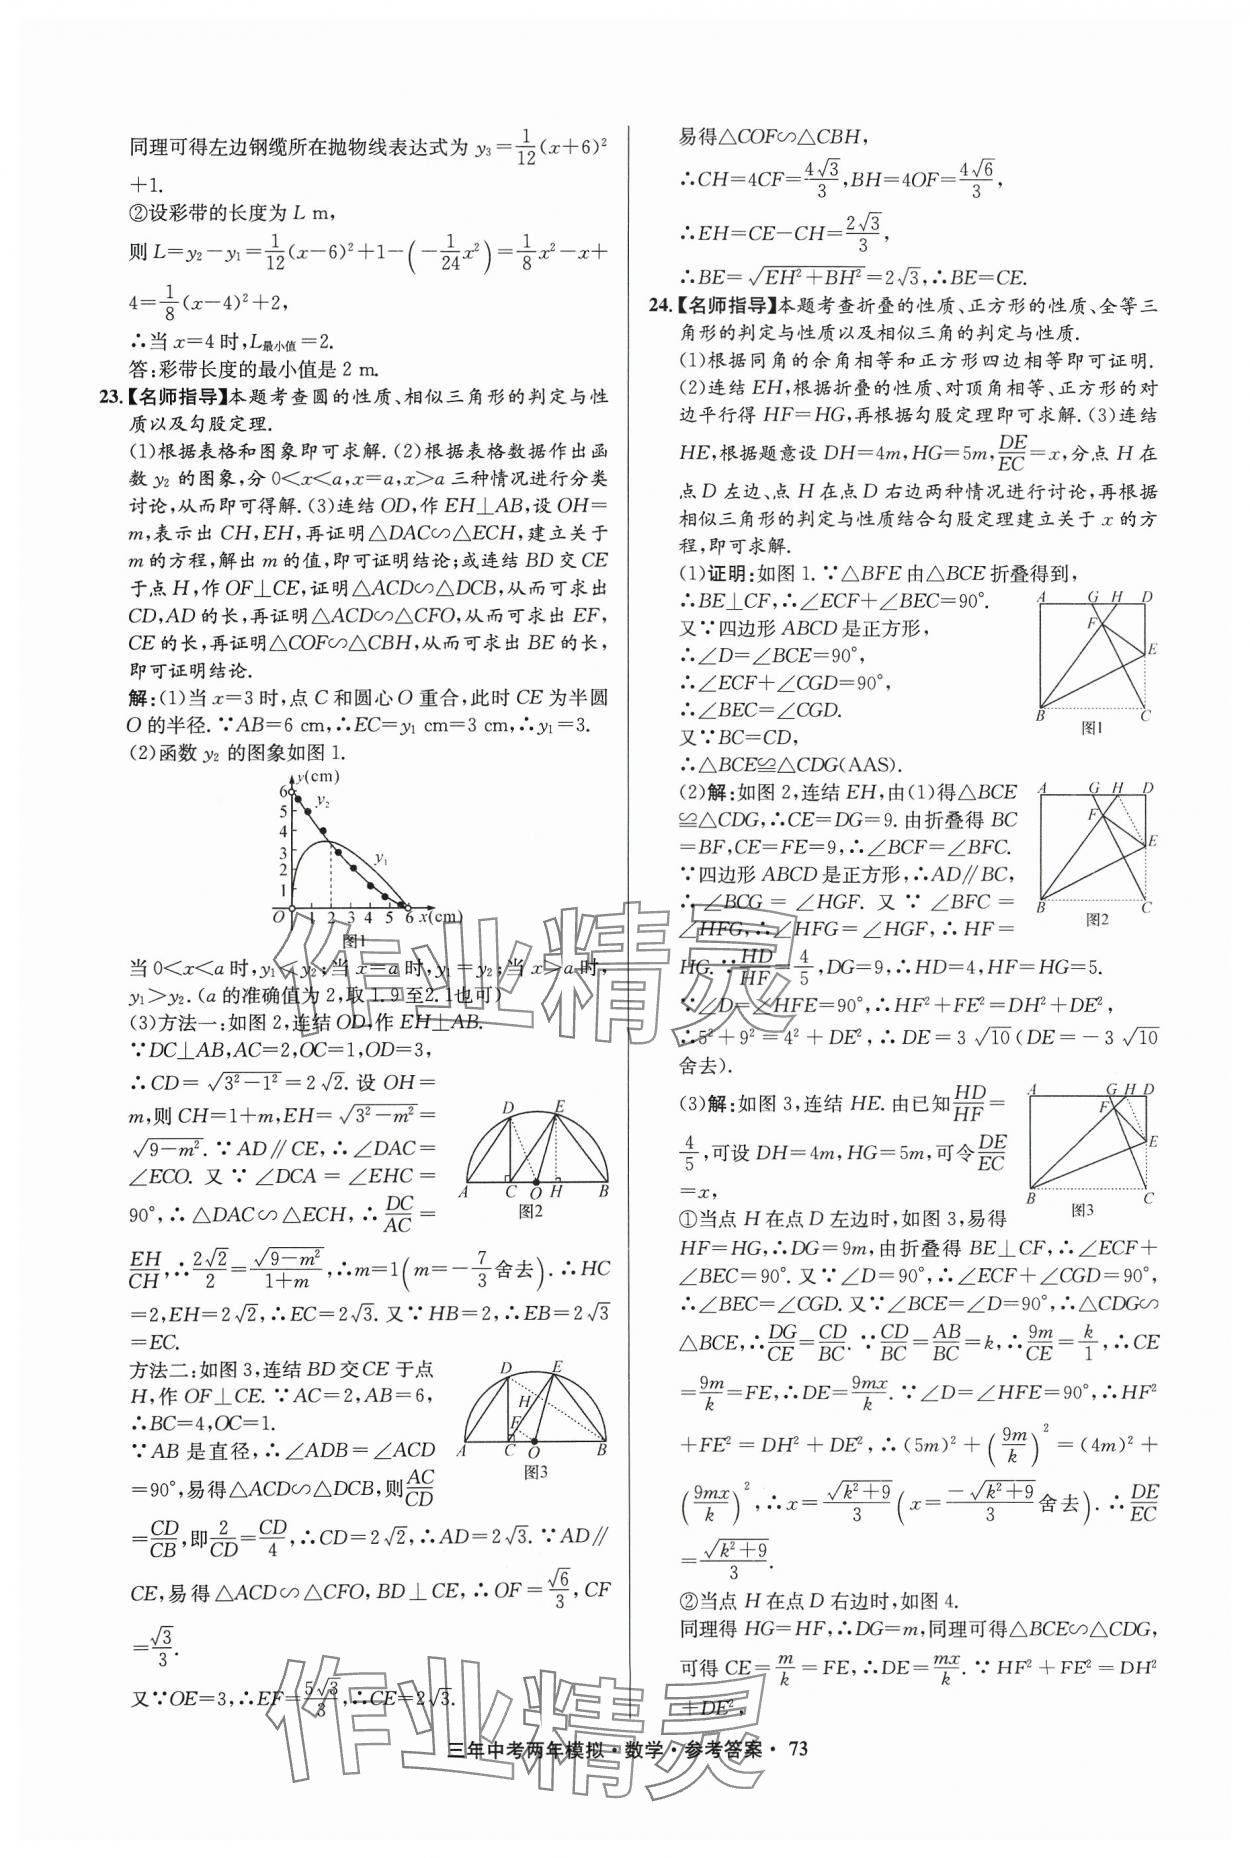 同理可得左边钢缆所在抛物线表达式为 y₃=1/12(x+6)²
+1.
②设彩带的长度为 L m,
则 L=y₂-y₁=1/12(x-6)²+1-(-1/24x²)=1/8x²-x+
4=1/8(x-4)²+2,
∴当 x=4 时,L最小值=2.
答:彩带长度的最小值是 2 m.
23.【名师指导】本题考查圆的性质、相似三角形的判定与性
质以及勾股定理.
(1)根据表格和图象即可求解.(2)根据表格数据作出函
数 y₂ 的图象,分 0<x<a,x=a,x>a 三种情况进行分类
讨论,从而即可得解.(3)连结 OD,作 EH⊥AB,设 OH=
m,表示出 CH,EH,再证明△DAC∽△ECH,建立关于
m 的方程,解出 m 的值,即可证明结论;或连结 BD 交 CE
于点 H,作 OF⊥CE,证明△ACD∽△DCB,从而可求出
CD,AD 的长,再证明△ACD∽△CFO,从而可求出 EF,
CE 的长,再证明△COF∽△CBH,从而可求出 BE 的长,
即可证明结论.
解:(1)当 x=3 时,点 C 和圆心 O 重合,此时 CE 为半圆
O 的半径.∵AB=6 cm,∴EC=y₁ cm=3 cm,∴y₁=3.
(2)函数 y₂ 的图象如图 1.
y(cm)
6
5
4
3
2
1
y₂
y₁
O 1 2 3 4 5 6 x(cm)
图1
当 0<x<a 时,y₁<y₂;当 x=a 时,y₁=y₂;当 x>a 时,
y₁>y₂.(a 的准确值为 2,取 1.9 至2.1也可)
(3)方法一:如图 2,连结 OD,作 EH⊥AB.
∵DC⊥AB,AC=2,OC=1,OD=3,
∴CD=√(3²-1²)=2√2.设 OH=
m,则 CH=1+m,EH=√(3²-m²)=
√(9-m²).∵AD∥CE,∴∠DAC=
∠ECO.又∵∠DCA=∠EHC=
90°,∴△DAC∽△ECH,∴DC/AC=
D E
A C O H B
图2
EH/CH,∴2√2/2=√(9-m²)/(1+m),∴m=1(m=-7/3舍去).∴HC
=2,EH=2√2,∴EC=2√3.又∵HB=2,∴EB=2√3
=EC.
方法二:如图 3,连结 BD 交 CE 于点
H,作 OF⊥CE.∵AC=2,AB=6,
∴BC=4,OC=1.
∵AB 是直径,∴∠ADB=∠ACD
=90°,易得△ACD∽△DCB,则AC/CD
D E
H
F
A C O B
图3
=CD/CB,即2/CD=CD/4,∴CD=2√2,∴AD=2√3.∵AD∥
CE,易得△ACD∽△CFO,BD⊥CE,∴OF=√6/3,CF
=√3/3.
又∵OE=3,∴EF=5√3/3,∴CE=2√3.
易得△COF∽△CBH,
∴CH=4CF=4√3/3,BH=4OF=4√6/3,
∴EH=CE-CH=2√3/3,
∴BE=√(EH²+BH²)=2√3,∴BE=CE.
24.【名师指导】本题考查折叠的性质、正方形的性质、全等三
角形的判定与性质以及相似三角的判定与性质.
(1)根据同角的余角相等和正方形四边相等即可证明.
(2)连结 EH,根据折叠的性质、对顶角相等、正方形的对
边平行得 HF=HG,再根据勾股定理即可求解.(3)连结
HE,根据题意设 DH=4m,HG=5m,DE/EC=x,分点 H 在
点 D 左边、点 H 在点 D 右边两种情况进行讨论,再根据
相似三角形的判定与性质结合勾股定理建立关于 x 的方
程,即可求解.
(1)证明:如图 1.∵△BFE 由△BCE 折叠得到,
∴BE⊥CF,∴∠ECF+∠BEC=90°.
又∵四边形 ABCD 是正方形,
∴∠D=∠BCE=90°,
∴∠ECF+∠CGD=90°,
∴∠BEC=∠CGD.
又∵BC=CD,
∴△BCE≌△CDG(AAS).
A G H D
F
E
B C
图1
(2)解:如图 2,连结 EH,由(1)得△BCE
≌△CDG,∴CE=DG=9.由折叠得 BC
=BF,CE=FE=9,∴∠BCF=∠BFC.
∵四边形 ABCD 是正方形,∴AD∥BC,
∴∠BCG=∠HGF.又∵∠BFC=
∠HFG,∴∠HFG=∠HGF,∴HF=
A G H D
F
E
B C
图2
HG.∵HD/HF=4/5,DG=9,∴HD=4,HF=HG=5.
∵∠D=∠HFE=90°,∴HF²+FE²=DH²+DE²,
∴5²+9²=4²+DE²,∴DE=3√10(DE=-3√10
舍去).
(3)解:如图 3,连结 HE.由已知HD/HF=
4/5,可设 DH=4m,HG=5m,可令DE/EC
=x,
A G H D
F
E
B C
图3
①当点 H 在点 D 左边时,如图 3,易得
HF=HG,∴DG=9m,由折叠得 BE⊥CF,∴∠ECF+
∠BEC=90°.又∵∠D=90°,∴∠ECF+∠CGD=90°,
∴∠BEC=∠CGD.又∵∠BCE=∠D=90°,∴△CDG∽
△BCE,∴DG/CE=CD/BC.∵CD/BC=AB/BC=k,∴9m/CE=k/1,∴CE
=9m/k=FE,∴DE=9mx/k.∵∠D=∠HFE=90°,∴HF²
+FE²=DH²+DE²,∴(5m)²+(9m/k)²=(4m)²+
(9mx/k)²,∴x=√(k²+9)/3(x=-√(k²+9)/3舍去).∴DE/EC
=√(k²+9)/3.
②当点 H 在点 D 右边时,如图 4.
同理得 HG=HF,∴DG=m,同理可得△BCE∽△CDG,
可得 CE=m/k=FE,∴DE=mx/k.∵HF²+FE²=DH²
+DE²,
三年中考两年模拟·数学·参考答案·73
作业精灵
作业精灵